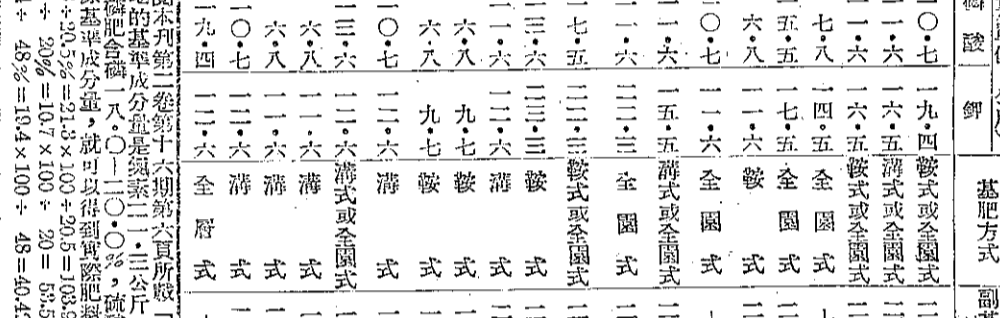 酸 鉀 基肥方式
〇·七 一九·四 鞍式或全園式
一·六 一六·五 溝式或全園式
一·六 一六·五 鞍式或全園式
七·八 一四·五 全園式
五·五 一七·五 全園式
六·八 一一·六 鞍式
〇·七 一一·六 全園式
一·六 一五·五 溝式或全園式
一·六 二二·三 全園式
七·五 二二·三 鞍式或全園式
三·六 二三·三 鞍式
一·六 一二·六 溝式
六·八 九·七 鞍式
六·八 九·七 鞍式
〇·七 一二·六 溝式
三·六 一二·六 溝式或全園式
六·八 一一·六 溝式
六·八 一一·六 溝式
〇·七 一二·六 溝式
九·四 一二·六 全層式
本刊第二卷第十六期第六頁所載
的基準成分量是氮素二一·三公斤
磷肥含磷一八·〇—二〇·〇%，硫
基準成分量，就可以得到實際肥料
÷20.5%=21.3×100÷20.5=103.9
÷ 20%=10.7×100÷ 20= 53.5
÷ 48%=19.4×100÷ 48=40.4